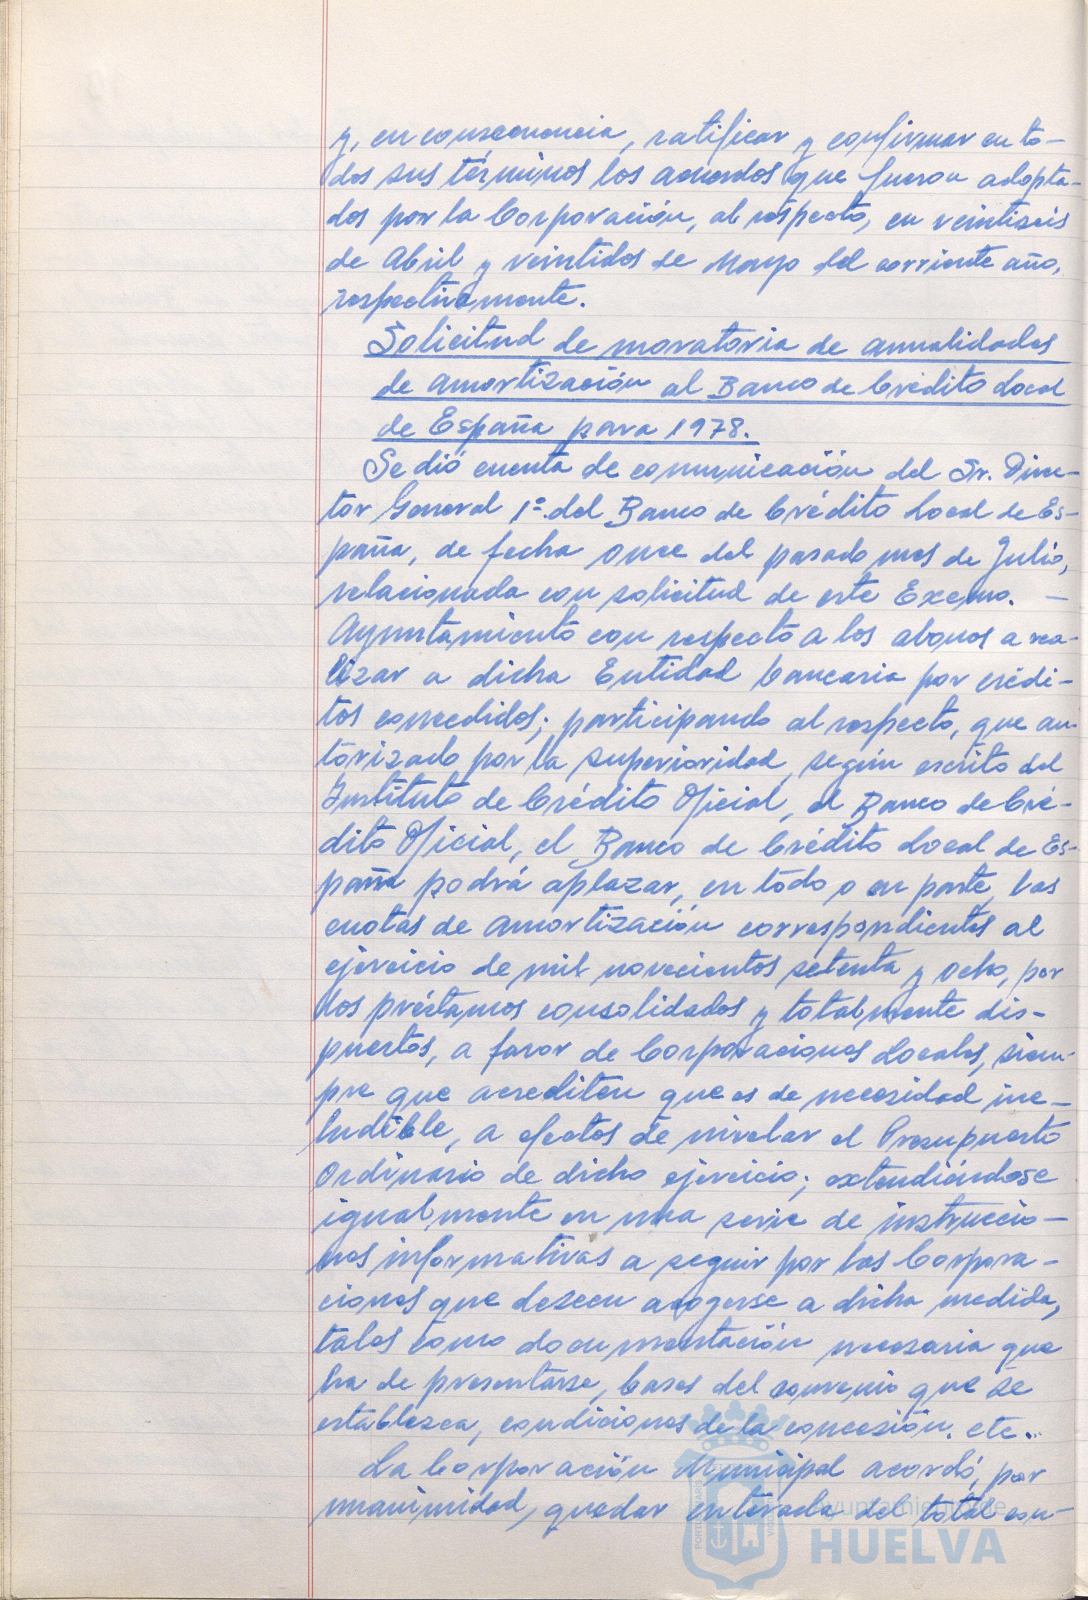 y, en consecuencia, ratificar y confirmar en to-
dos sus términos los acuerdos que fueron adopta-
dos por la Corporación, al respecto, en veintiseis
de Abril y veintidos de Mayo del corriente año,
respectivamente.
Solicitud de moratoria de anualidades
de amortización al Banco de Crédito Local
de España para 1978.
Se dió cuenta de comunicación del Sr. Direc-
tor General 1º del Banco de Crédito Local de Es-
paña, de fecha once del pasado mes de Julio,
relacionada con solicitud de este Excmo. -
Ayuntamiento con respecto a los abonos a rea-
lizar a dicha Entidad bancaria por crédi-
tos concedidos; participando al respecto, que au-
torizado por la superioridad, según escrito del
Instituto de Crédito Oficial, el Banco de Cré-
dito Oficial, el Banco de Crédito Local de Es-
paña podrá aplazar, en todo o en parte, las
cuotas de amortización correspondientes al
ejercicio de mil novecientos setenta y ocho, por
los préstamos consolidados y totalmente dis-
puestos, a favor de Corporaciones Locales, siem-
pre que acrediten que es de necesidad ine-
ludible, a efectos de nivelar el Presupuesto
Ordinario de dicho ejercicio; extendiéndose
igualmente en una serie de instruccio-
nes informativas a seguir por las Corpora-
ciones que deseen acogerse a dicha medida,
tales como documentación necesaria que
ha de presentarse, bases del convenio que se
establezca, condiciones de la concesión, etc..
La Corporación Municipal acordó, por
unanimidad, quedar enterada del total con-
Ayuntamiento de
HUELVA